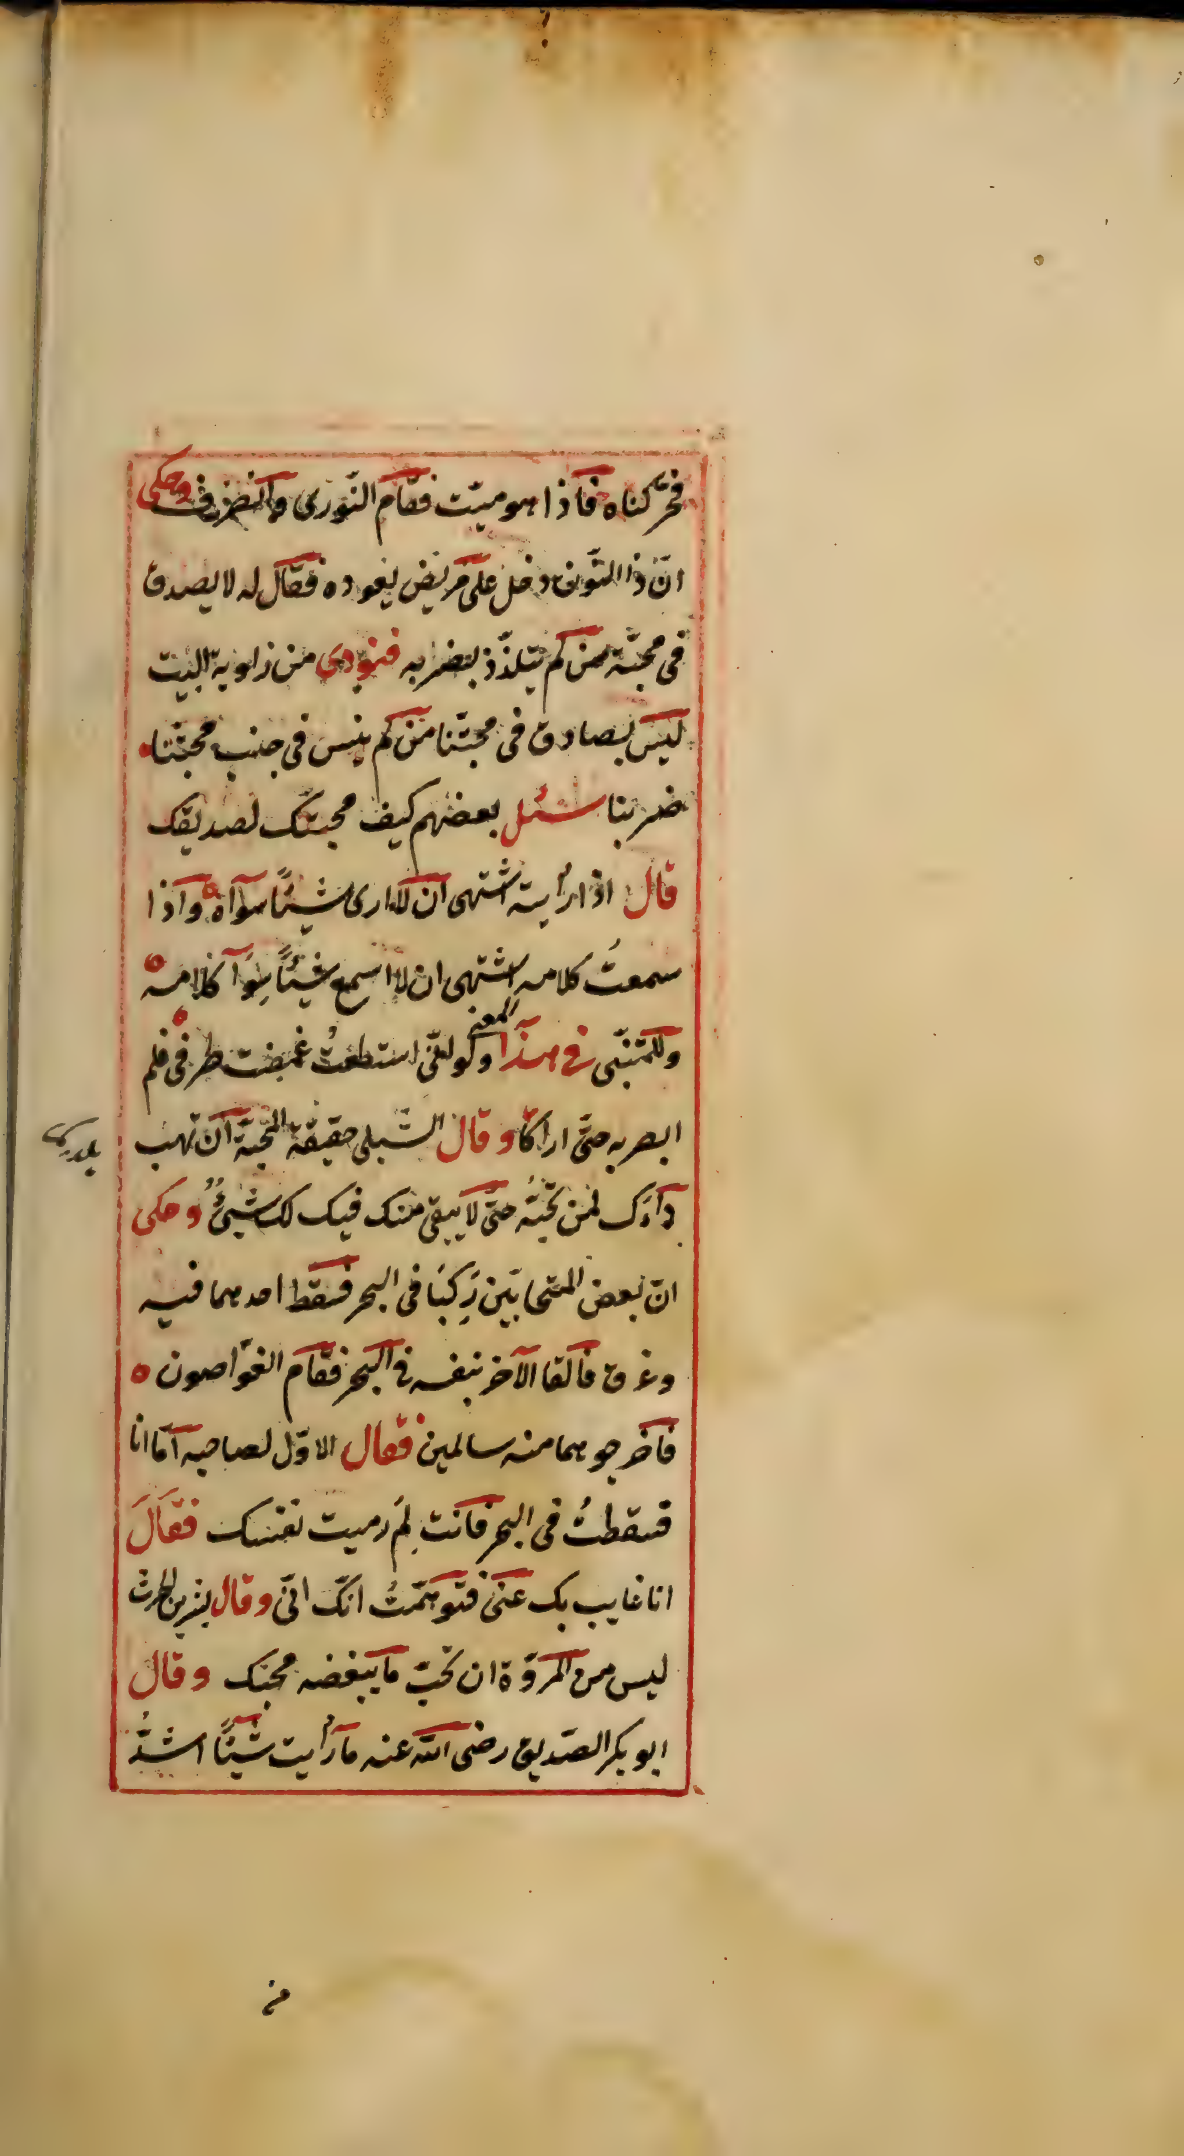 فحرّكناه فاذا هو ميّت فقام النّورى وانصرف وحكى
انّ ذا النّون دخل على مريض يعوده فقال له لا يصدق
فى محبّته من لم يتلذّذ بضربه فنودى من زاوية البيت
ليس بصادق فى محبّتنا من لم ينس فى جنب محبّتنا
ضربنا سئل بعضهم كيف محبتك لصديقك
قال اذا رأيته اشتهى ان لا ارى شيئًا سواه واذا
سمعتُ كلامه اشتهى ان لا اسمع شيئًا سِوَا كلامه
وللمتنبّى فى هذا المعنى ولو انّى استطعتُ غمضت طرفى فلم
ابصر به حتّى اراكا وقال الشّبلى حقيقة المحبّة ان تهب
ذاتك لمن تحبّه حتّى لا يبقى منك فيك لك شيئٌ وحكى
انّ بعض المتحابّين رَكِبَا فى البحر فسقط احدهما فيه
وغرق فالقا الآخر بنفسه فى البحر فقام الغوّاصون
فاخرجوهما منه سالمين فقال الاوّل لصاحبه امّا انا
فسقطتُ فى البحر فانت لِمَ رميت نفسك فقال
انا غايب بك عنّى فتوهّمتُ انّك انّى وقال بشر بن الحرث
ليس من المروّة ان تحبّ ما يبغضه محبك وقال
ابو بكر الصّديق رضى الله عنه ما رأيت شيئًا اشدُّ
من